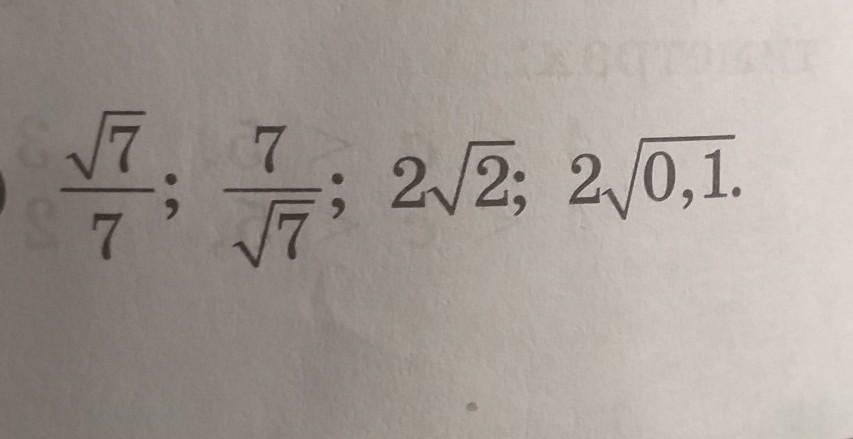 √7/7; 7/√7; 2√2; 2√0,1.